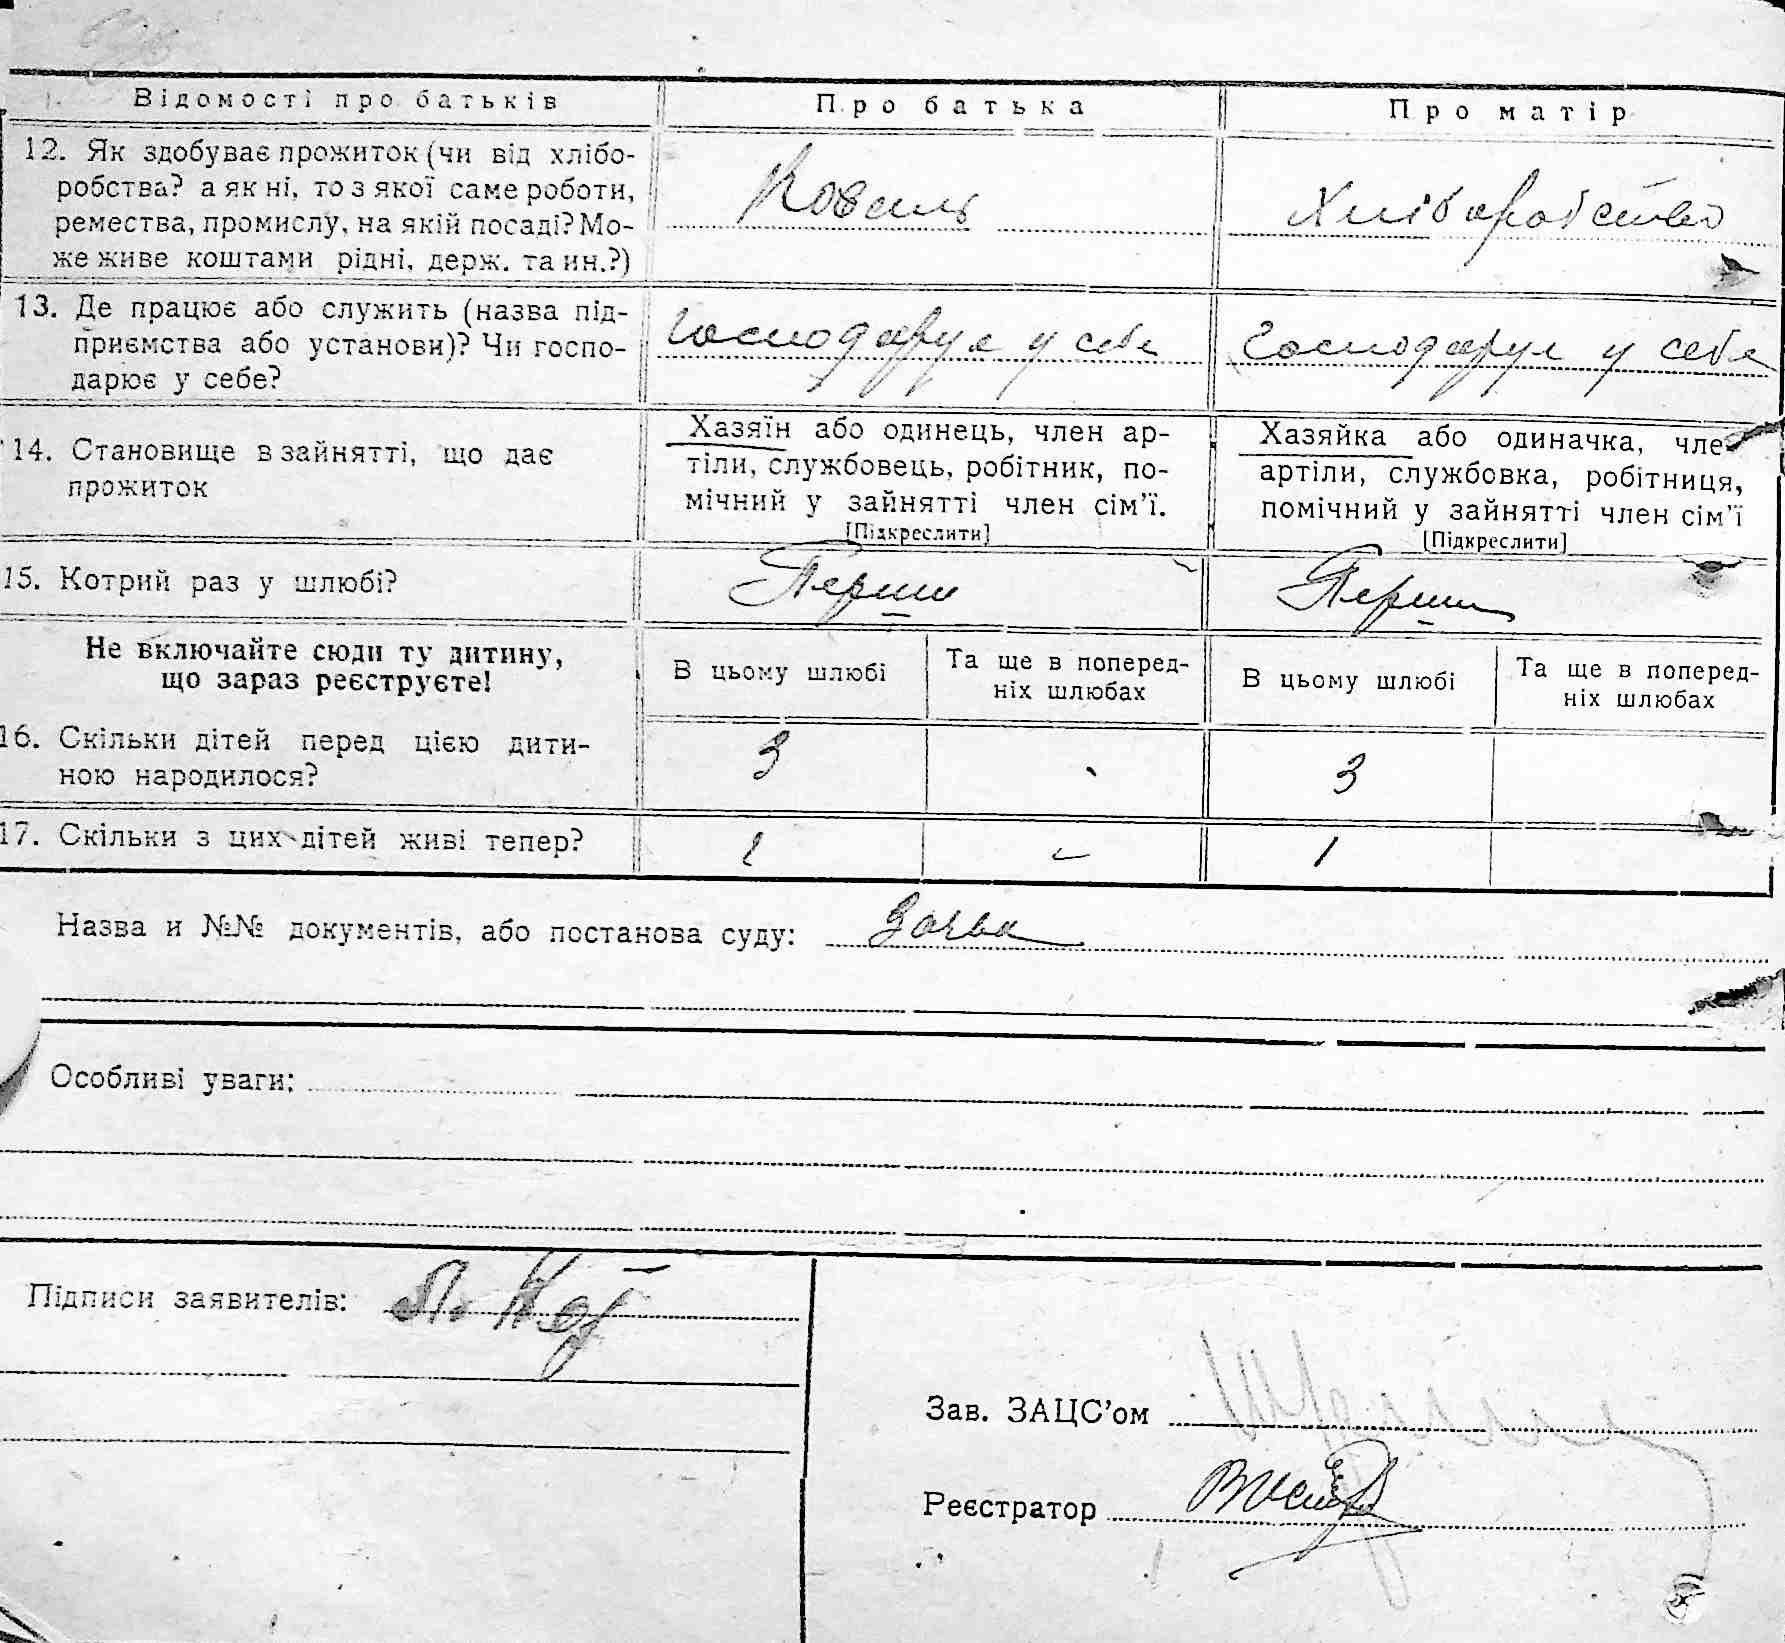 Відомості про батьків
Про батька
Про матір
12. Як здобуває прожиток (чи від хлібо-
робства? а як ні, то з якої саме роботи,
ремества, промислу, на якій посаді? Мо-
же живе коштами рідні, держ. та ин.?)
Коваль
Хліборобство
13. Де працює або служить (назва під-
приємства або установи)? Чи госпо-
дарює у себе?
Господарує у себе
Господарує у себе
14. Становище в зайнятті, що дає
прожиток
Хазяїн або одинець, член ар-
тіли, службовець, робітник, по-
мічний у зайнятті член сім’ї.
[Підкреслити]
Хазяйка або одиначка, чле
артіли, службовка, робітниця,
помічний у зайнятті член сім’ї
[Підкреслити]
15. Котрий раз у шлюбі?
Перши
Перши
Не включайте сюди ту дитину,
що зараз реєструєте!
В цьому шлюбі
Та ще в поперед-
ніх шлюбах
В цьому шлюбі
Та ще в поперед-
ніх шлюбах
16. Скільки дітей перед цією дити-
ною народилося?
3
3
17. Скільки з цих дітей живі тепер?
1
-
1
Назва и №№ документів, або постанова суду:
Особливі уваги:
Підписи заявителів:
Зав. ЗАЦС’ом
Реєстратор